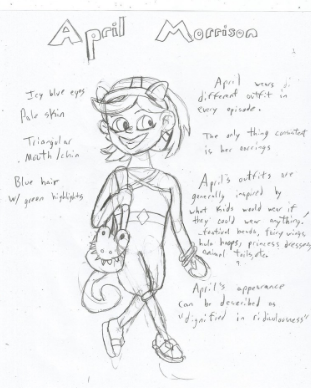 April Morrison
Icy blue eyes
Pale skin
Triangular
Mouth/chin
Blue hair
w/ green highlights
April wears a
different outfit in
every episode.
The only thing consistent
is her earrings
April's outfits are
generally inspired by
what kids would wear if
they could wear anything!
feathered boas, fairy wings
hula hoops, princess dresses,
animal tails, etc.
April's appearance
can be described as
"dignified in ridiculousness"